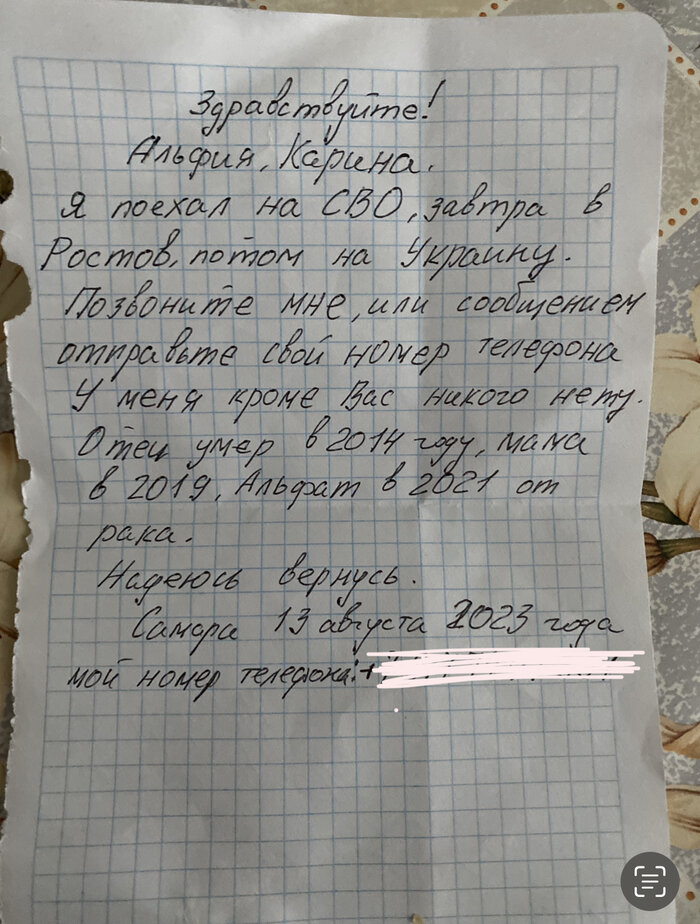 Здравствуйте!
Альфия, Карина.
Я поехал на СВО, завтра в
Ростов, потом на Украину.
Позвоните мне, или сообщением
отправьте свой номер телефона
У меня кроме Вас никого нету.
Отец умер в 2014 году, мама
в 2019, Альфат в 2021 от
рака.
Надеюсь вернусь.
Самара 13 августа 2023 года
мой номер телефона: +